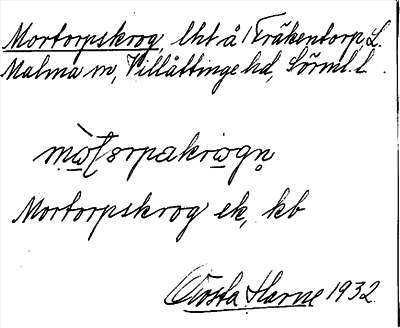 Mortorpskrog, lht å Träkentorp, L.
Malma sn, Villåttinge hd, Sörml. l.
Mortorpskrog ek, kb
Gösta Harne 1932.